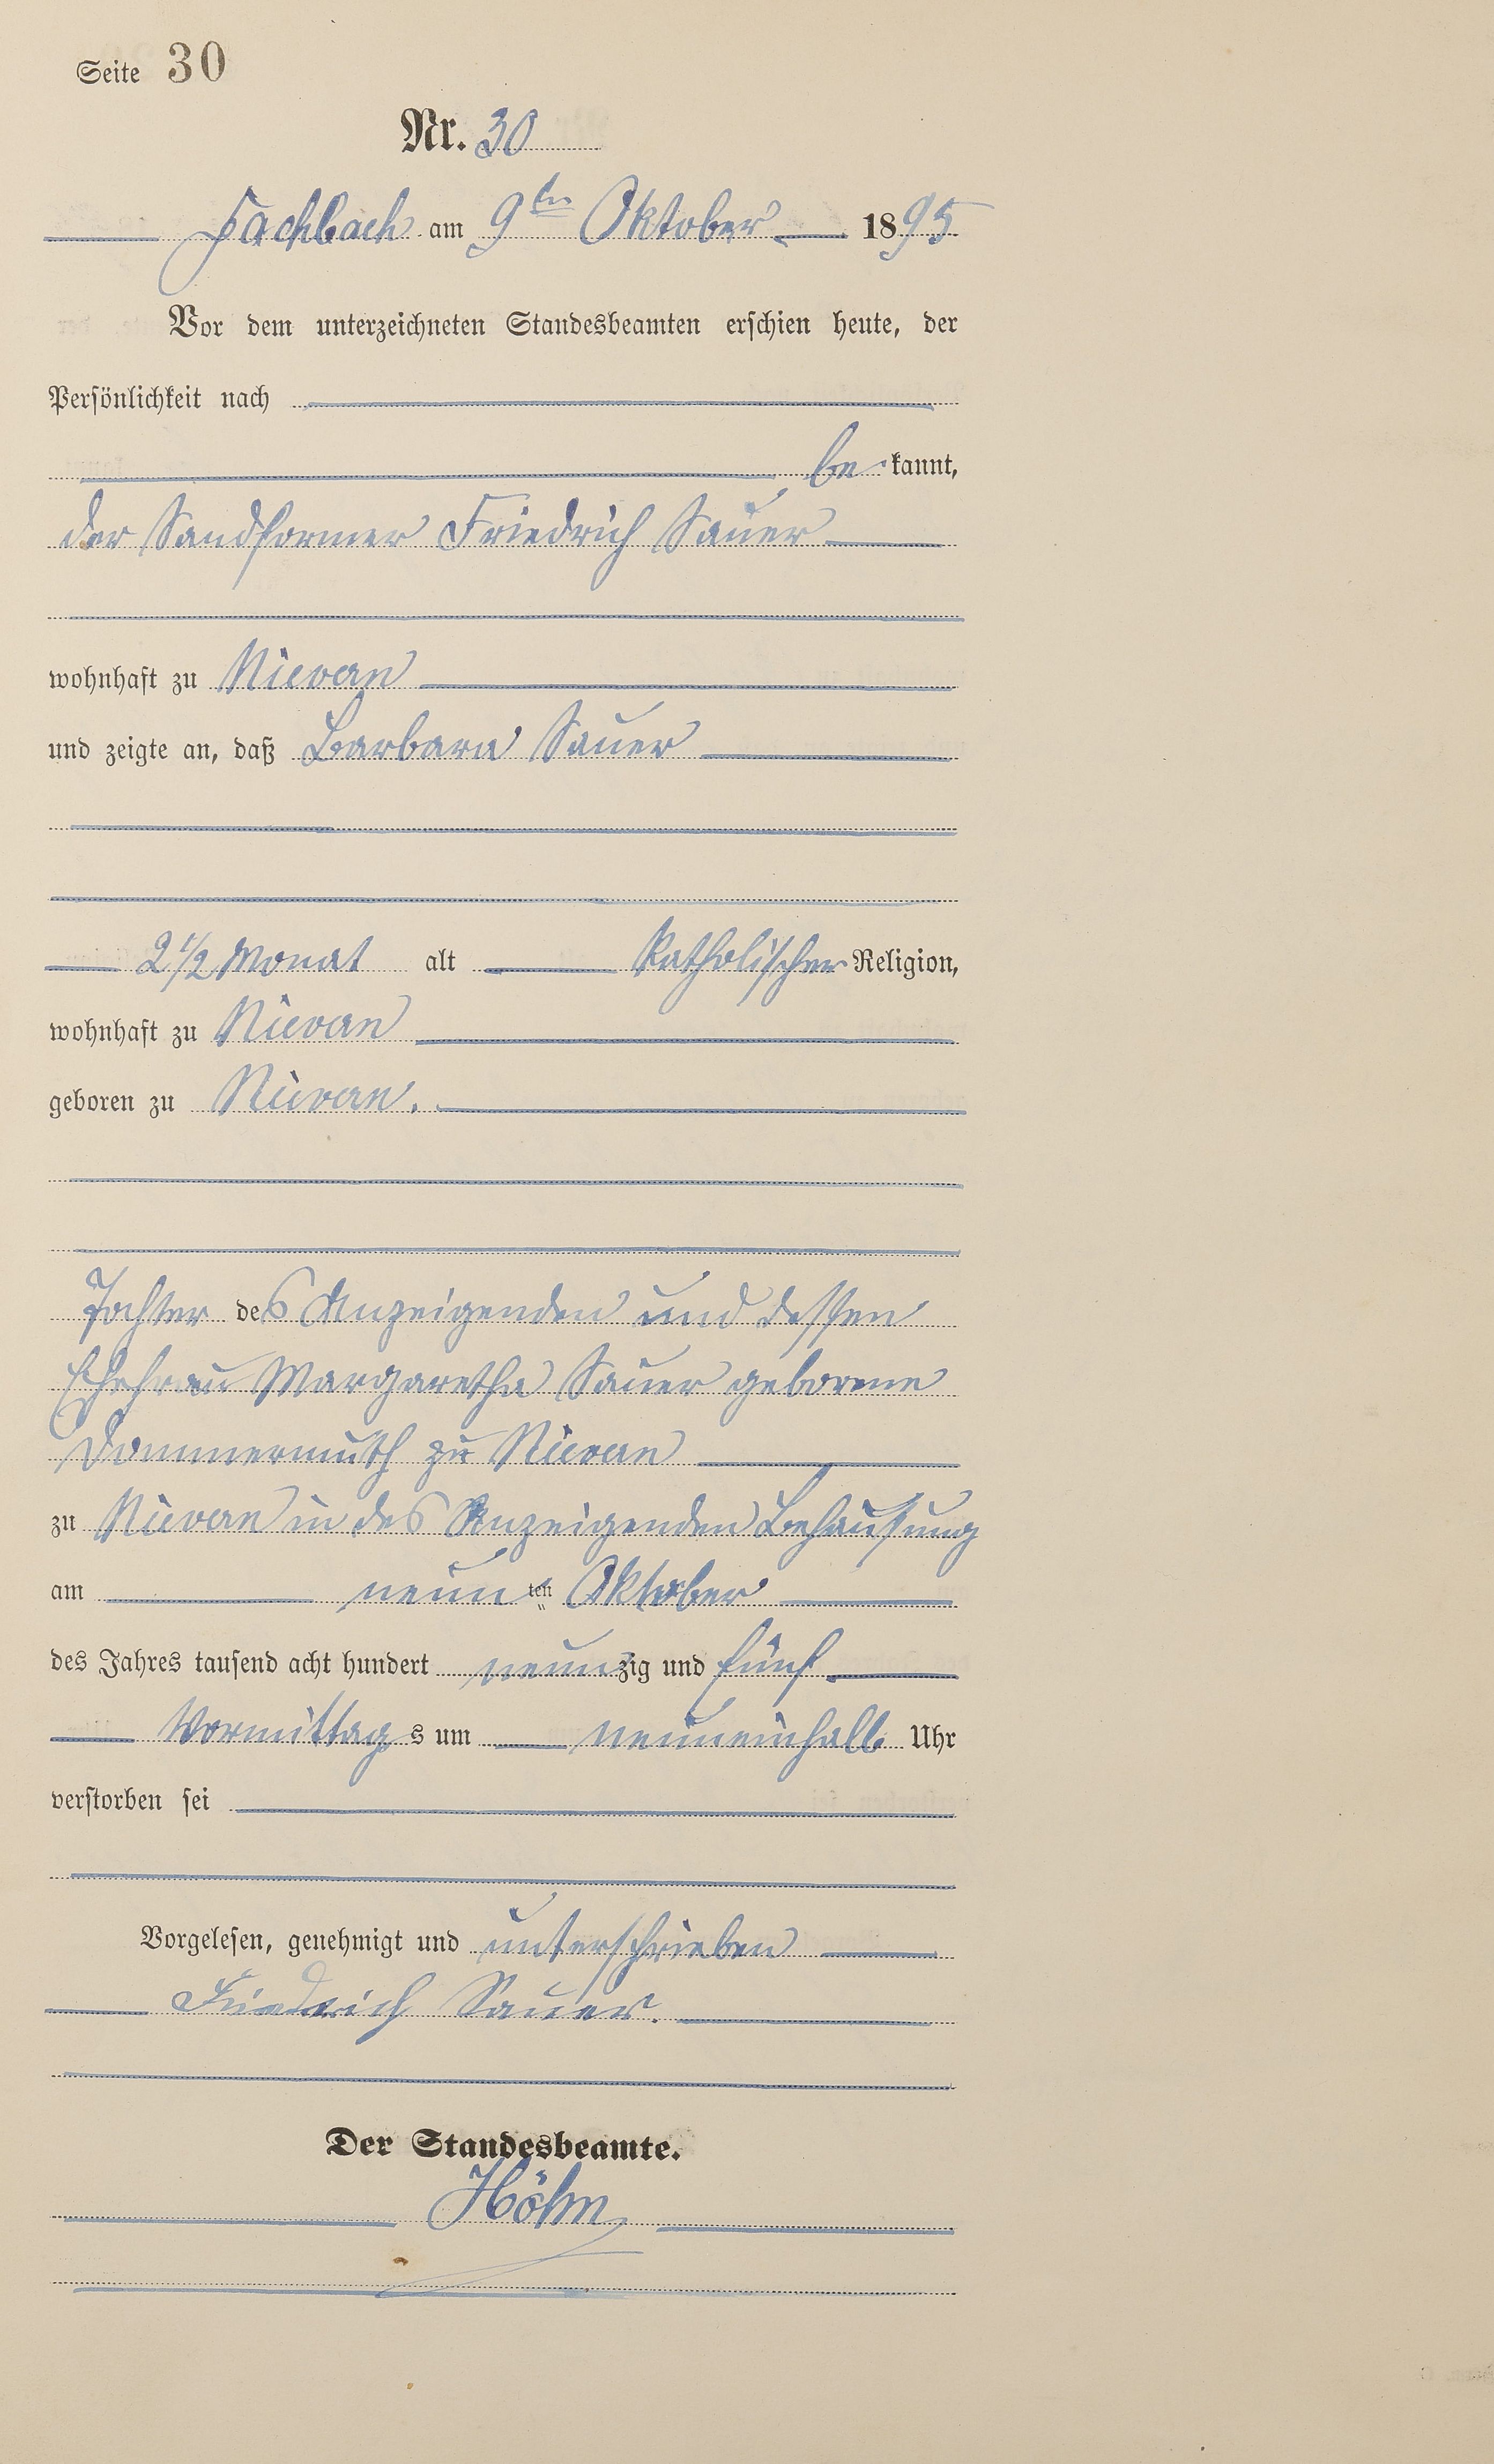 Seite 30
Nr. 30
Fachbach am 9ten Oktober 1895
Vor dem unterzeichneten Standesbeamten erschien heute, der
Persönlichkeit nach
be kannt,
der Sandformer Friedrich Sauer
wohnhaft zu Nievern
und zeigte an, daß Barbara Sauer
2 1/2 Monat alt katholischer Religion,
wohnhaft zu Nievern
geboren zu Nievern.
Tochter des Anzeigenden und dessen
Ehefrau Margaretha Sauer geborene
Dommermuth zu Nievern
zu Nievern in des Anzeigenden Behausung
am neun ten Oktober
des Jahres tausend acht hundert neunzig und fünf
Vormittags um neuneinhalb Uhr
verstorben sei
Vorgelesen, genehmigt und unterschrieben
Friedrich Sauer.
Der Standesbeamte.
Höhn